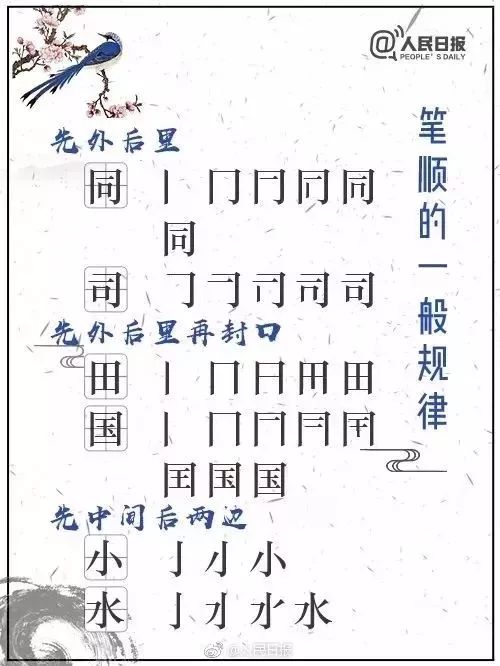 @人民日报
PEOPLE'S DAILY
笔顺的一般规律
先外后里
同 丨 冂 同
同
司 司
先外后里再封口
田 丨 冂 田
国 丨 冂
国
先中间后两边
小 亅 小
水 亅 水
@人民日报